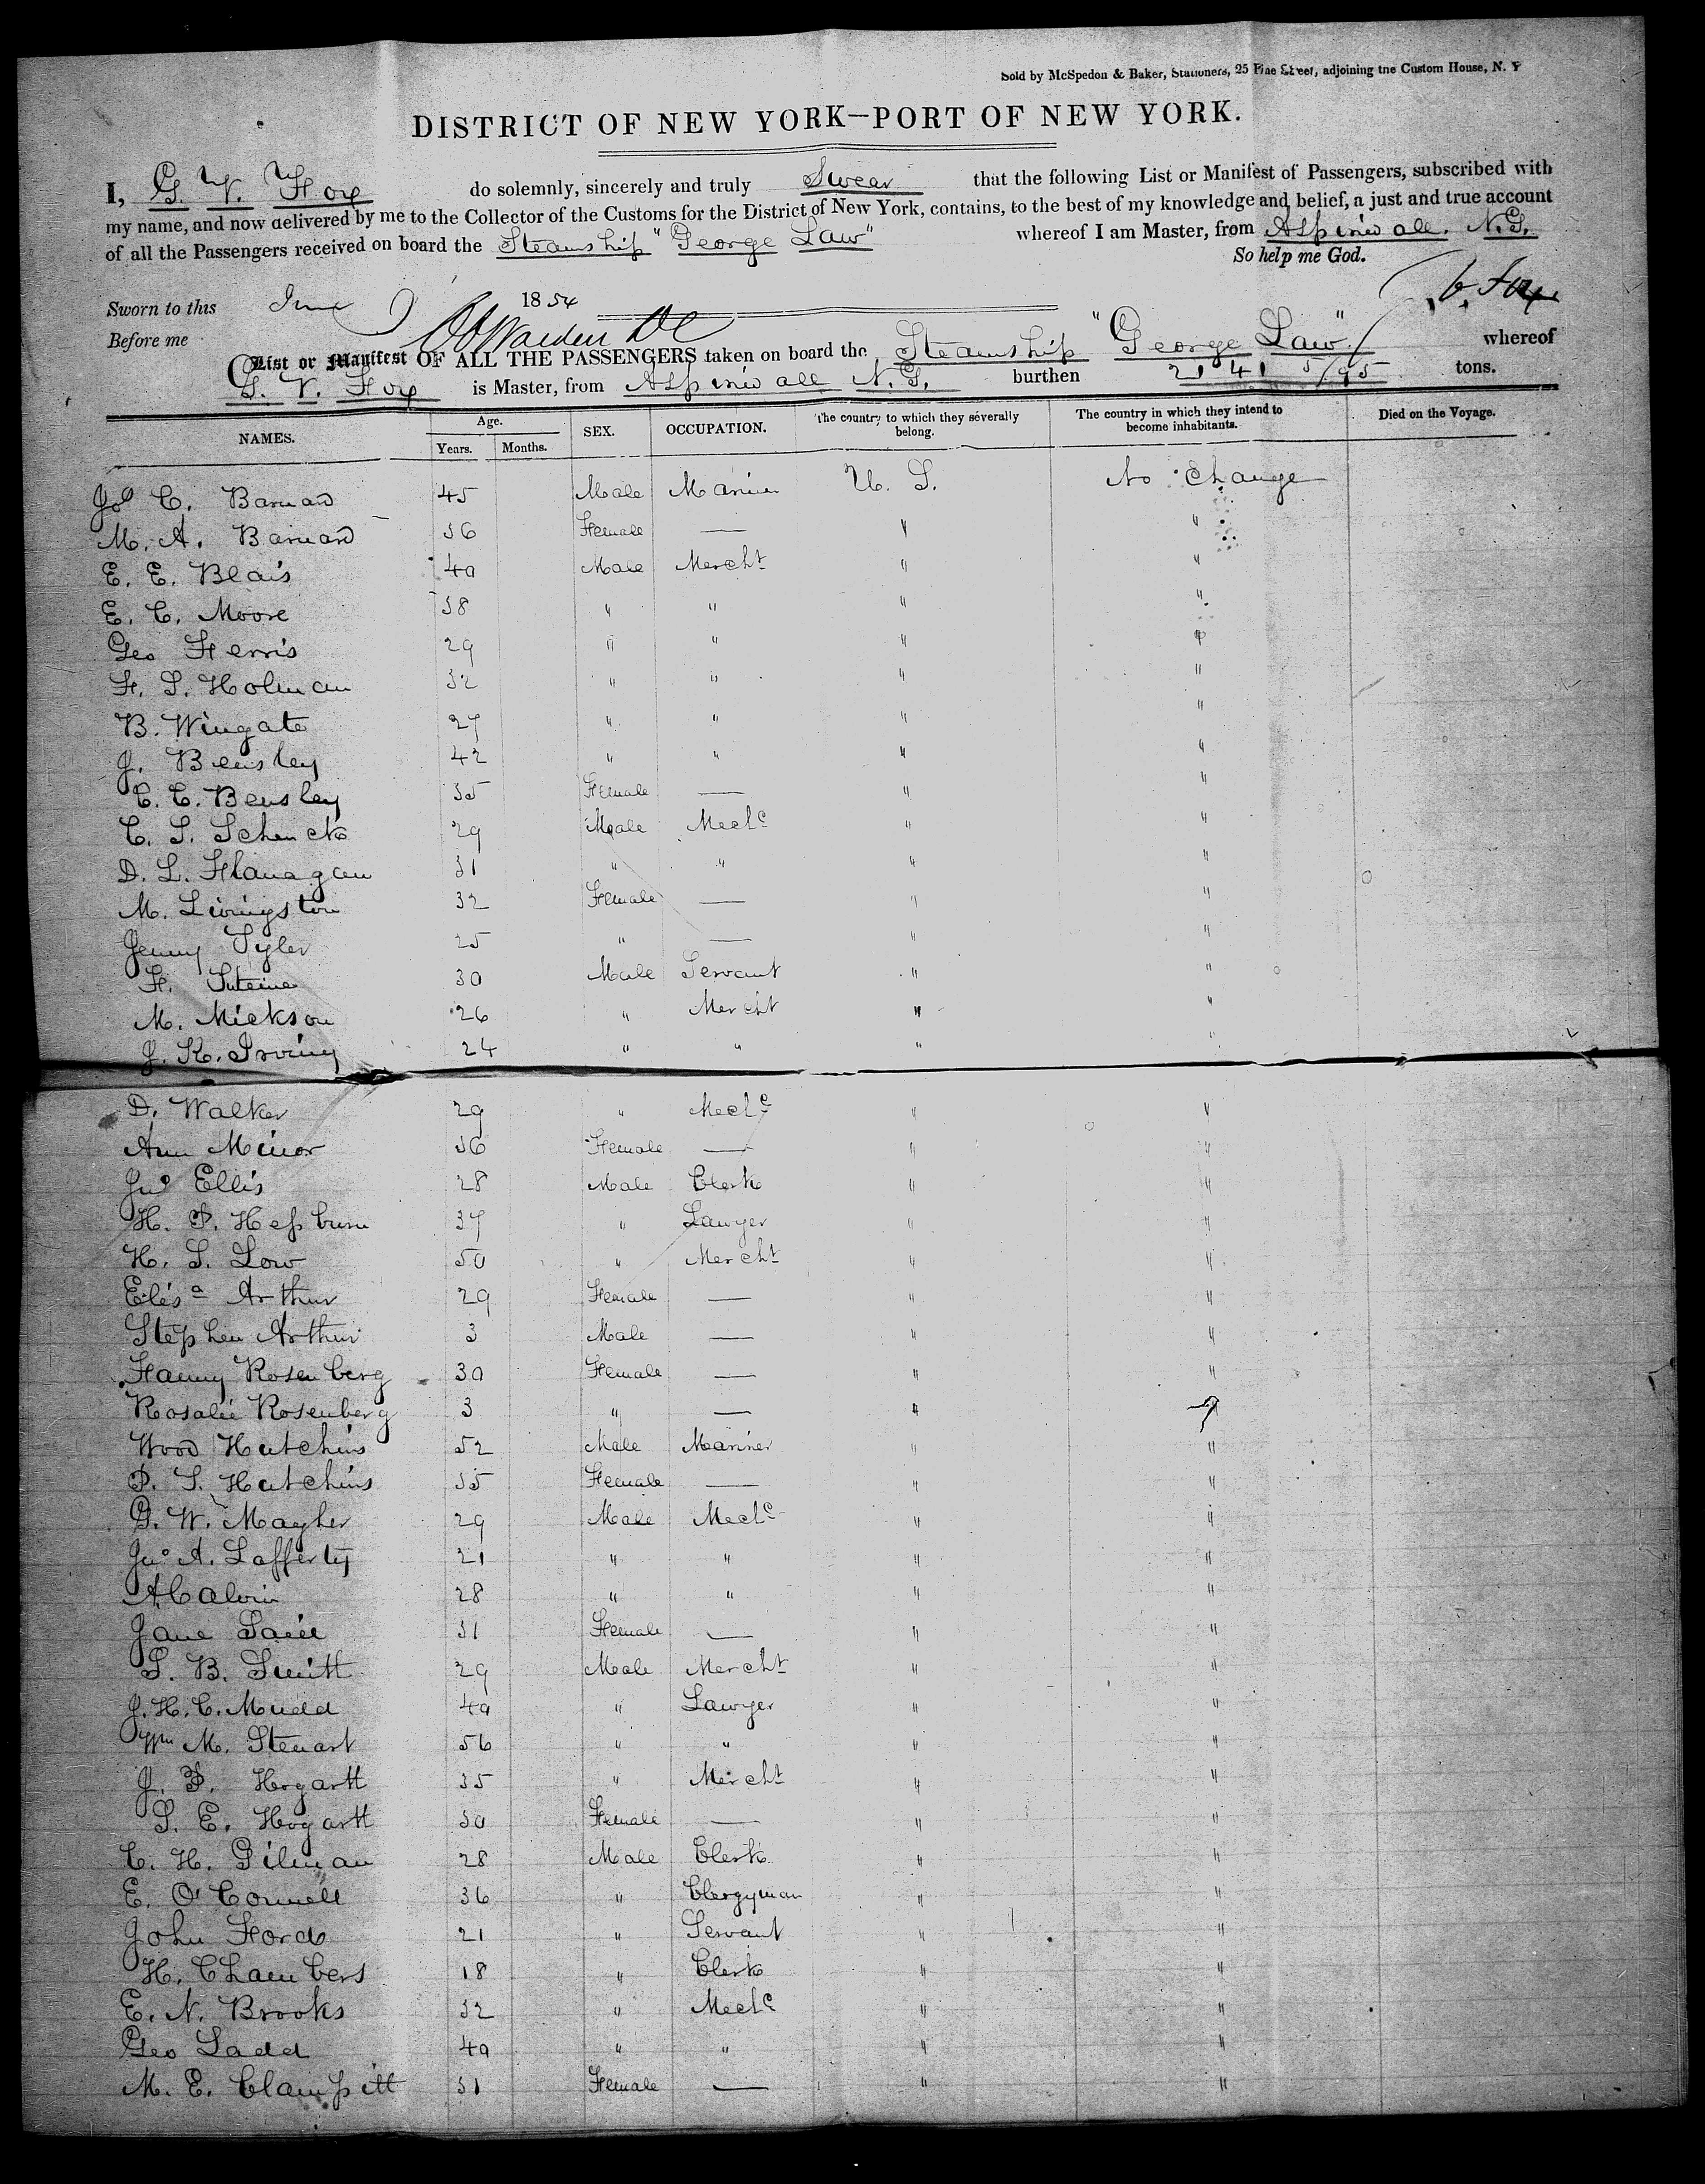 Sold by McSpedon & Baker, Stationers, 25 Pine Street, adjoining the Custom House, N. Y
DISTRICT OF NEW YORK—PORT OF NEW YORK.
I, G. V. Fox do solemnly, sincerely and truly Swear that the following List or Manifest of Passengers, subscribed with
my name, and now delivered by me to the Collector of the Customs for the District of New York, contains, to the best of my knowledge and belief, a just and true account
of all the Passengers received on board the Steamship "George Law" whereof I am Master, from Aspinwall. N.G.
So help me God.
G. V. Fox
Sworn to this June 9 1854
Before me
List or Manifest OF ALL THE PASSENGERS taken on board the Steamship "George Law" whereof
G. V. Fox is Master, from Aspinwall N.G. burthen 2141 5/95 tons.
NAMES. Age. SEX. OCCUPATION. The country to which they severally belong. The country in which they intend to become inhabitants. Died on the Voyage.
Years. Months.
Jos C. Barnard 45 Male Mariner U. S. No Change
M. A. Barnard 36 Female — " "
E. E. Blais 40 Male Mercht " "
E. C. Moore 38 " " " "
Geo Ferris 29 " " " "
F. S. Holman 32 " " " "
B. Wingate 27 " " " "
J. Bensley 42 " " " "
C. C. Bensley 35 Female — " "
C. S. Schenck 29 Male Mechc " "
D. L. Flanagan 31 " " " "
M. Livingston 32 Female — " "
Jenny Tyler 25 " — " "
F. 30 Male Servant " "
M. Mickson 26 " Mercht " "
J. K. Irving 24 " " "
D. Walker 29 " Mechc " "
Ann Minor 36 Female — " "
Jno Ellis 28 Male Clerk " "
H. P. Hepburn 37 " Lawyer " "
H. S. Low 50 " Mercht " "
Elisa Arthur 29 Female — " "
Stephen Arthur 3 Male — " "
Fanny Rosenberg 30 Female — " "
Rosalie Rosenberg 3 " — " "
Wood Hutchins 52 Male Mariner " "
P. S. Hutchins 35 Female — " "
G. W. Magher 29 Male Mechc " "
Jno A. Lafferty 21 " " " "
A Calvin 28 " " " "
Jane 31 Female — " "
S. B. Smith 29 Male Mercht " "
J. H. C. Mudd 40 " Lawyer " "
Wm M. Stewart 56 " " " "
J. P. Hogartt 35 " Mercht " "
S. E. Hogartt 30 Female — " "
C. H. Gilman 28 Male Clerk " "
E. O'Connell 36 " Clergyman " "
John Ford 21 " Servant " "
H. Chambers 18 " Clerk " "
E. N. Brooks 32 " Mechc " "
Geo Ladd 40 " " " "
M. E. Clampitt 31 Female — " "